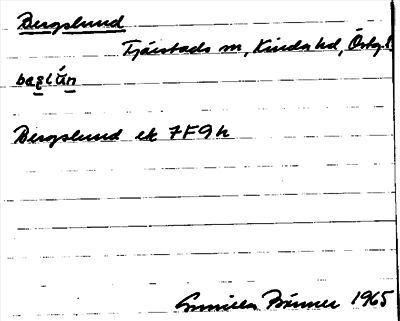 Bergslund
Tjärstads sn, Kinda hd, Östg.
bæʂlún
Bergslund ek 7F9h
Gunilla Brånner 1965